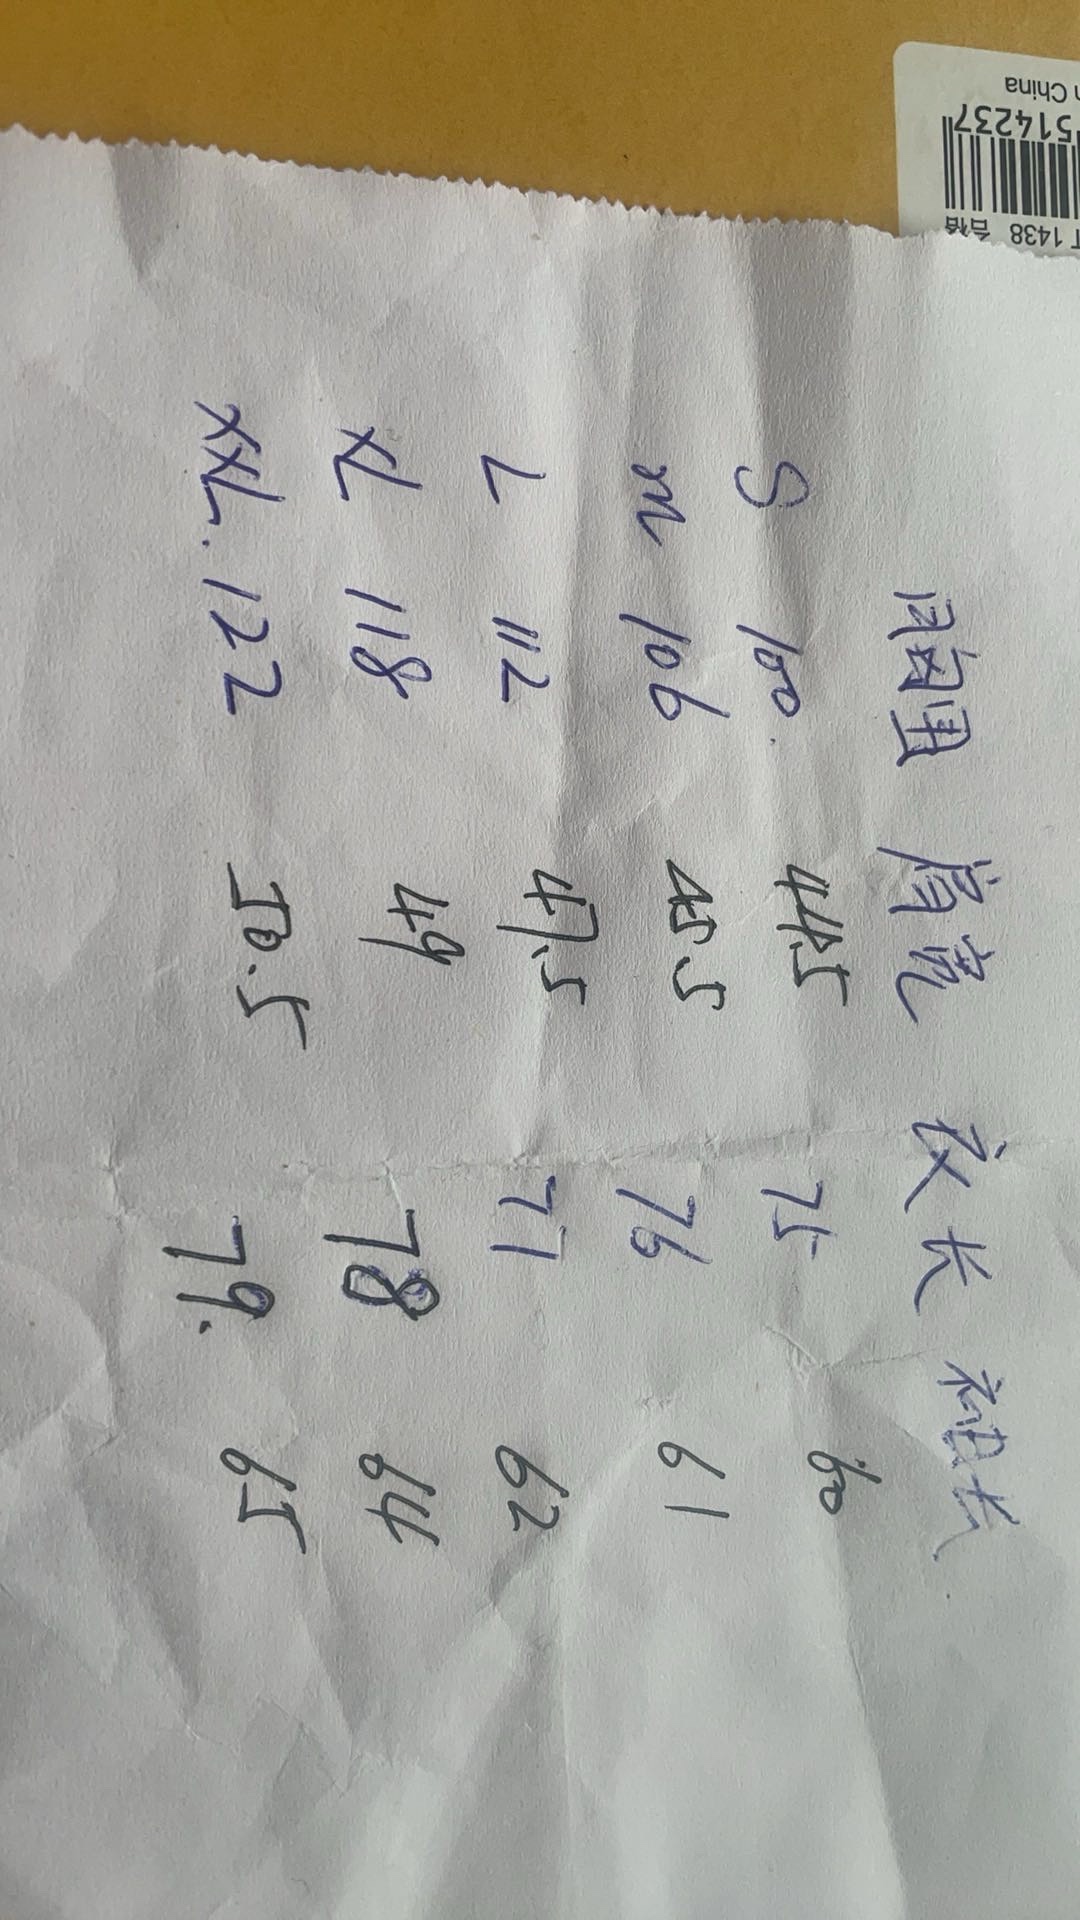 n China
514237
T 1438 合格
胸围 肩宽 衣长 袖长
S 100. 44.5 75 60
M 106 45.5 76 61
L 112 47.5 77 62
XL 118 49 78 64
XXL. 122 50.5 79. 65